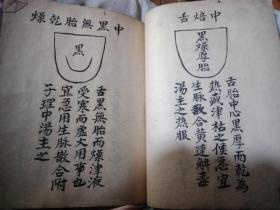 中焙舌
黑燥厚胎
舌胎中心黑厚而乾為
熱盛津枯之候急宜
生脉散合黃連解毒
湯主之热服
中黑無胎乾燥
黑
舌黑無胎而燥津液
受寒而虛火用事也
宜急用生脉散合附
子理中湯主之